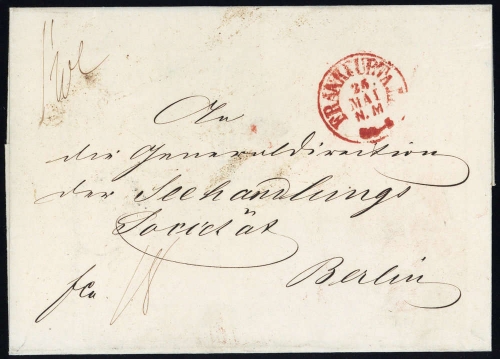 FRANKFURT A.
25
MAI
N.M
An
die Generaldirection
der Seehandlungs
Societät
Berlin
fco